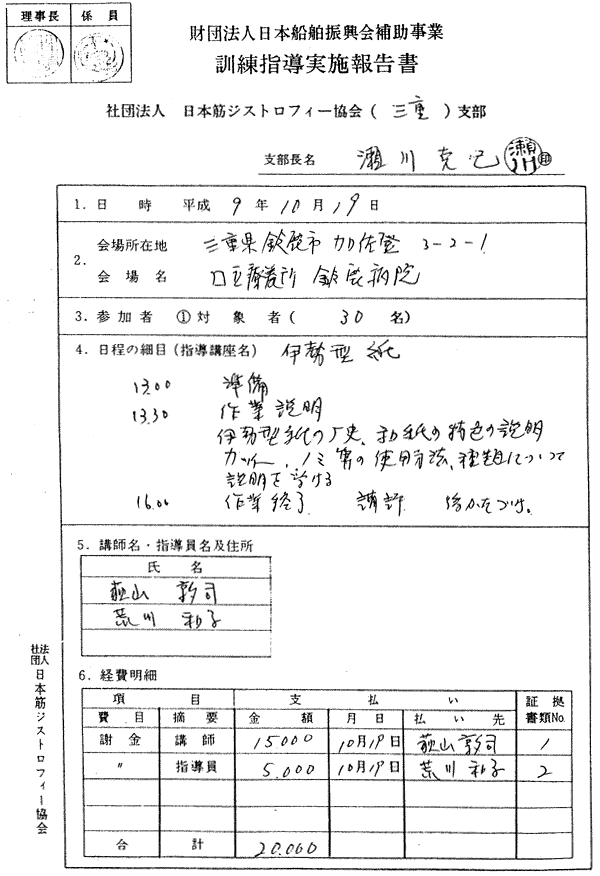 理事長 係員
財団法人日本船舶振興会補助事業
訓練指導実施報告書
社団法人 日本筋ジストロフィー協会（三重）支部
支部長名 瀬川克己 瀬川
1．日時 平成9年10月19日
2．
会場所在地 三重県鈴鹿市加佐登 3-2-1
会場名 口立療養所 鈴鹿病院
3．参加者 ①対象者（30名）
4．日程の細目（指導講座名） 伊勢型紙
13.00 準備
13.30 作業説明
伊勢型紙の歴史、和紙の特色の説明
カッター、ノミ等の使用方法、種類について
説明を受ける
16.00 作業終了 後かたづけ。
5．講師名・指導員名及住所
氏名
荻山 敦司
荒川 和子
6．経費明細
項目 支払い 証拠書類No.
費目 摘要 金額 月日 払い先
謝金 講師 15000 10月19日 荻山敦司 1
〃 指導員 5.000 10月19日 荒川和子 2
合計 20.000
社団法人 日本筋ジストロフィー協会